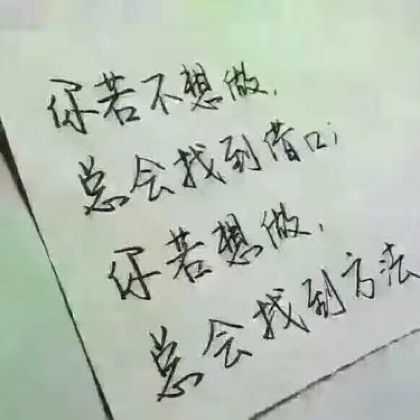 你若不想做,
总会找到借口;
你若想做,
总会找到方法